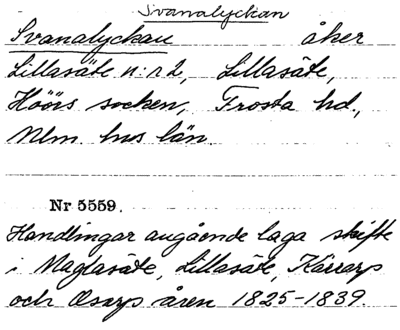 Svanalyckan
Svanalyckan åker
Lillasäte n:r 2, Lillasäte,
Höörs socken, Frosta hd.,
Mlm. hus län.
Nr 5559.
Handlingar angående laga skifte
i Maglasäte, Lillasäte, Kärrarp
och Osarp åren 1825-1839.